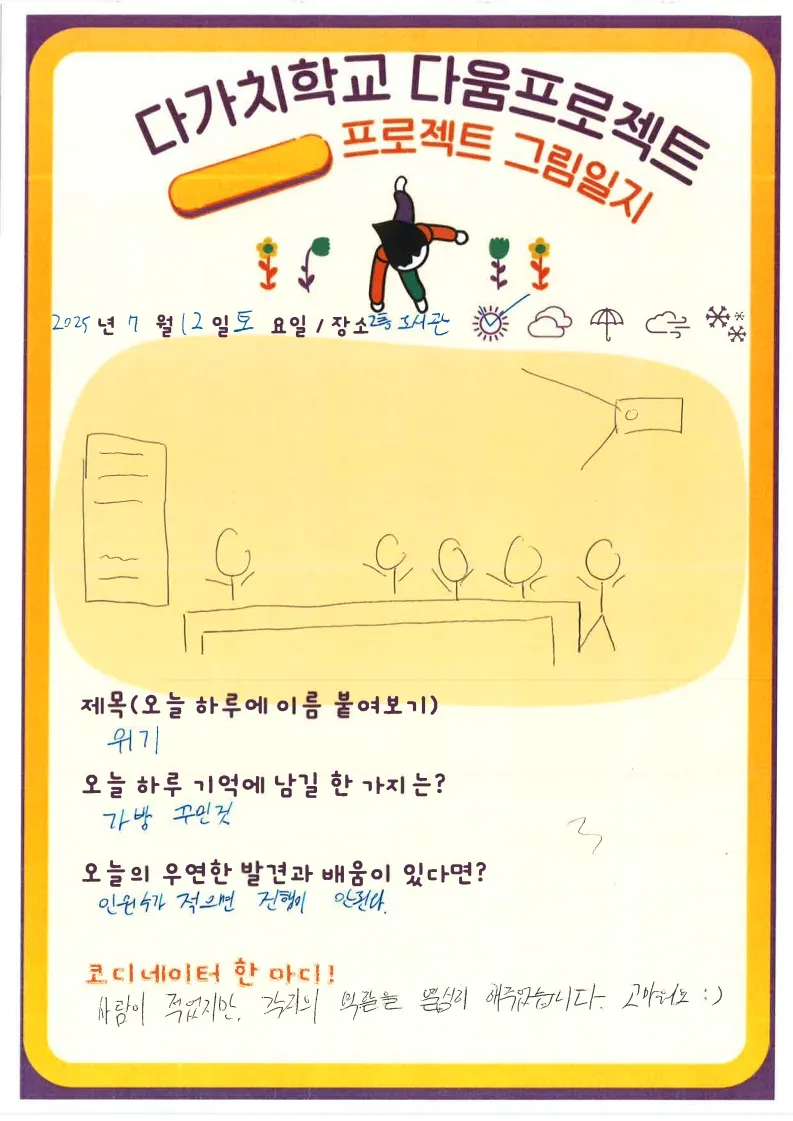 다가치학교 다움프로젝트
프로젝트 그림일지
2025 년 7 월 12 일 토 요일 / 장소 2층 도서관
제목(오늘 하루에 이름 붙여보기)
위기
오늘 하루 기억에 남길 한 가지는?
가방 꾸민것
오늘의 우연한 발견과 배움이 있다면?
인원수가 적으면 진행이 안된다.
코디네이터 한 마디!
사람이 적었지만, 각자의 역할을 열심히 해주었습니다. 고마워요 :)